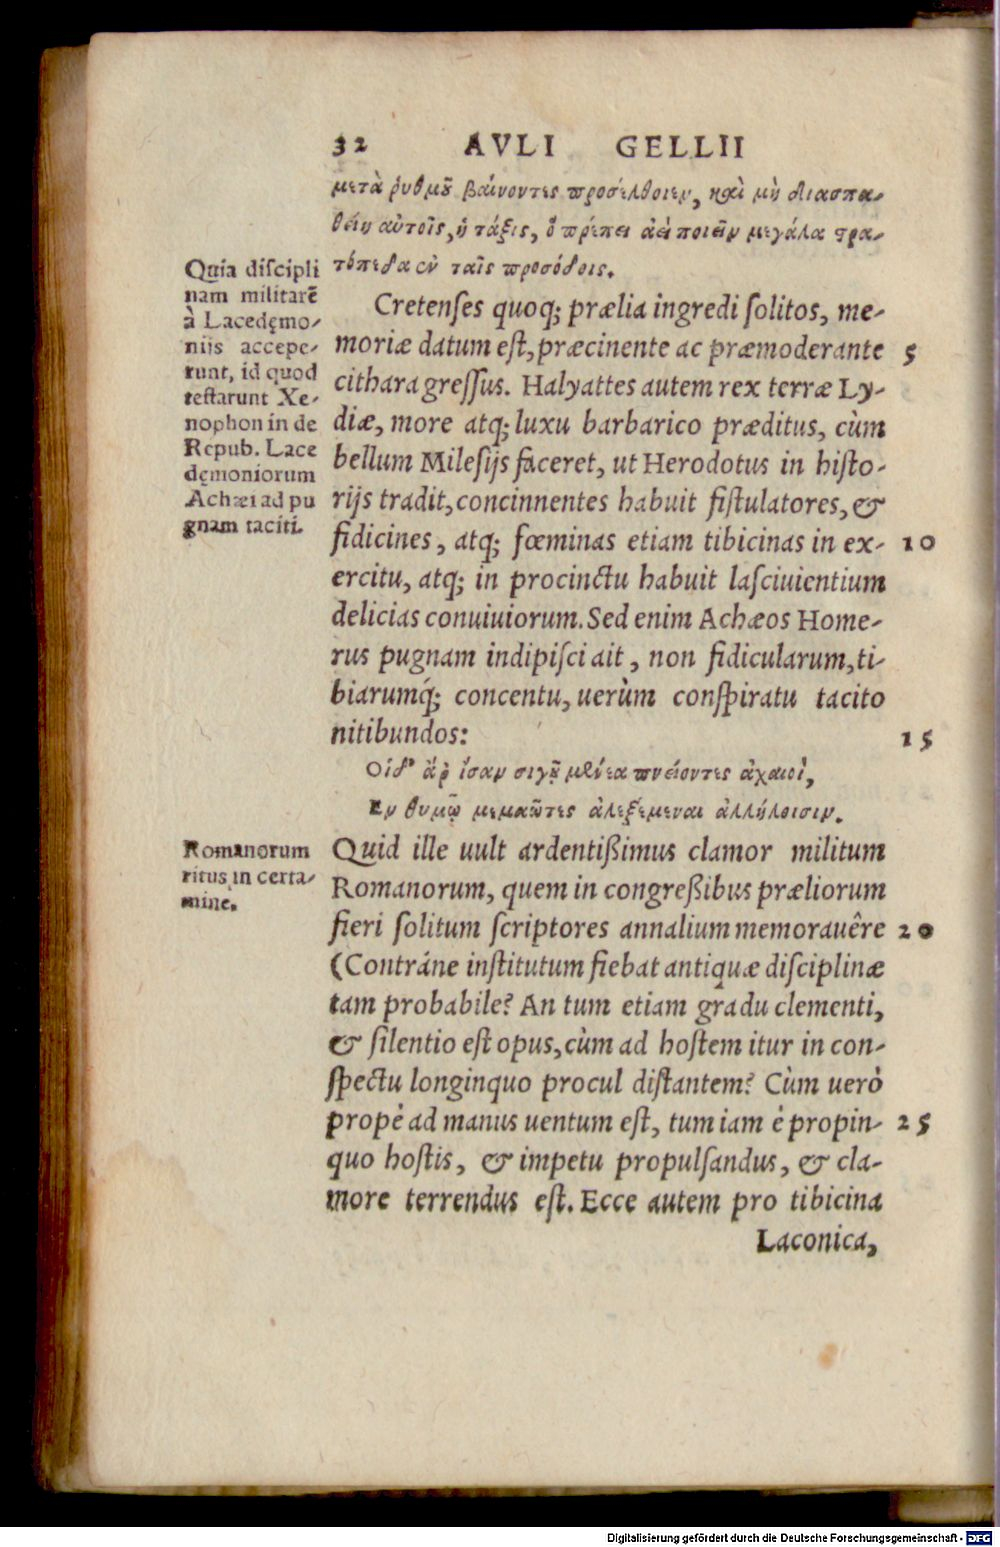 32 AVLI GELLII
μετὰ ῥυθμοῦ βαίνοντες προσέλθοιεν, καὶ μὴ διασπα-
θείη αὐτοῖς, ἡ τάξις, ὃ πρέπει ἀεὶ ποιεῖν μεγάλα στρα-
τόπεδα ἐν ταῖς προσόδοις.
Cretenſes quoq; prælia ingredi ſolitos, me-
moriæ datum eſt, præcinente ac præmoderante 5
cithara greſſus. Halyattes autem rex terræ Ly-
diæ, more atq; luxu barbarico præditus, cùm
bellum Mileſijs faceret, ut Herodotus in hiſto-
rijs tradit, concinnentes habuit fiſtulatores, &
fidicines, atq; fœminas etiam tibicinas in ex- 10
ercitu, atq; in procinctu habuit laſciuientium
delicias conuiuiorum. Sed enim Achæos Home-
rus pugnam indipiſci ait, non fidicularum, ti-
biarumq́; concentu, uerùm conſpiratu tacito
nitibundos: 15
Οἱ δ' ἄρ ἴσαν σιγῇ μένεα πνείοντες ἀχαιοὶ,
Εν θυμῷ μεμαῶτες ἀλεξέμεναι ἀλλήλοισιν.
Quid ille uult ardentißimus clamor militum
Romanorum, quem in congreßibus præliorum
fieri ſolitum ſcriptores annalium memorauêre 20
(Contráne inſtitutum fiebat antiquæ diſciplinæ
tam probabile? An tum etiam gradu clementi,
& ſilentio eſt opus, cùm ad hoſtem itur in con-
ſpectu longinquo procul diſtantem? Cùm uerò
propè ad manus uentum eſt, tum iam è propin- 25
quo hoſtis, & impetu propulſandus, & cla-
more terrendus eſt. Ecce autem pro tibicina
Laconica,
Quia diſcipli
nam militarē
à Lacedęmo-
niis accepe-
runt, id quod
teſtarunt Xe-
nophon in de
Repub. Lace
dęmoniorum
Achæi ad pu
gnam taciti.
Romanorum
ritus in certa-
mine.
Digitalisierung gefördert durch die Deutsche Forschungsgemeinschaft - DFG